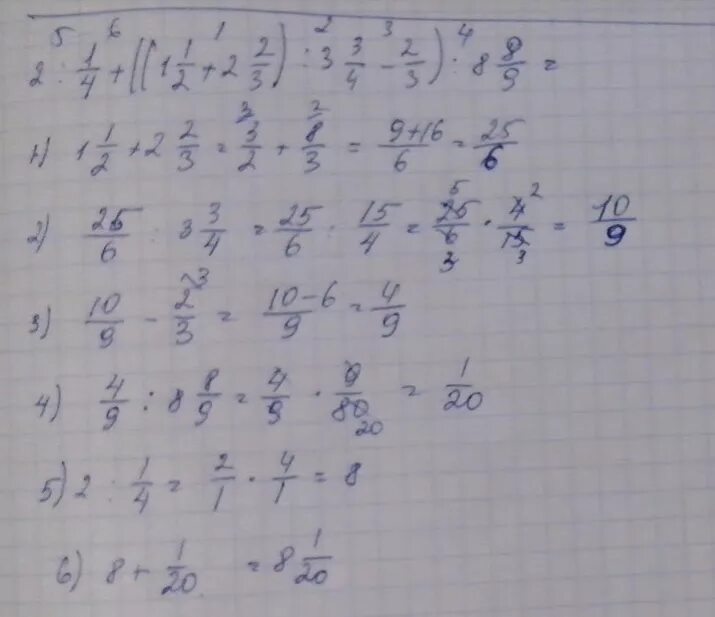 2 : 1/4 + ((1 1/2 + 2 2/3) : 3 3/4 - 2/3) : 8 8/9 =
1) 1 1/2 + 2 2/3 = 3/2 + 8/3 = 9+16/6 = 25/6
2) 25/6 : 3 3/4 = 25/6 : 15/4 = 25/6 · 4/15 = 10/9
3) 10/9 - 2/3 = 10-6/9 = 4/9
4) 4/9 : 8 8/9 = 4/9 · 9/80 = 1/20
5) 2 : 1/4 = 2/1 · 4/1 = 8
6) 8 + 1/20 = 8 1/20